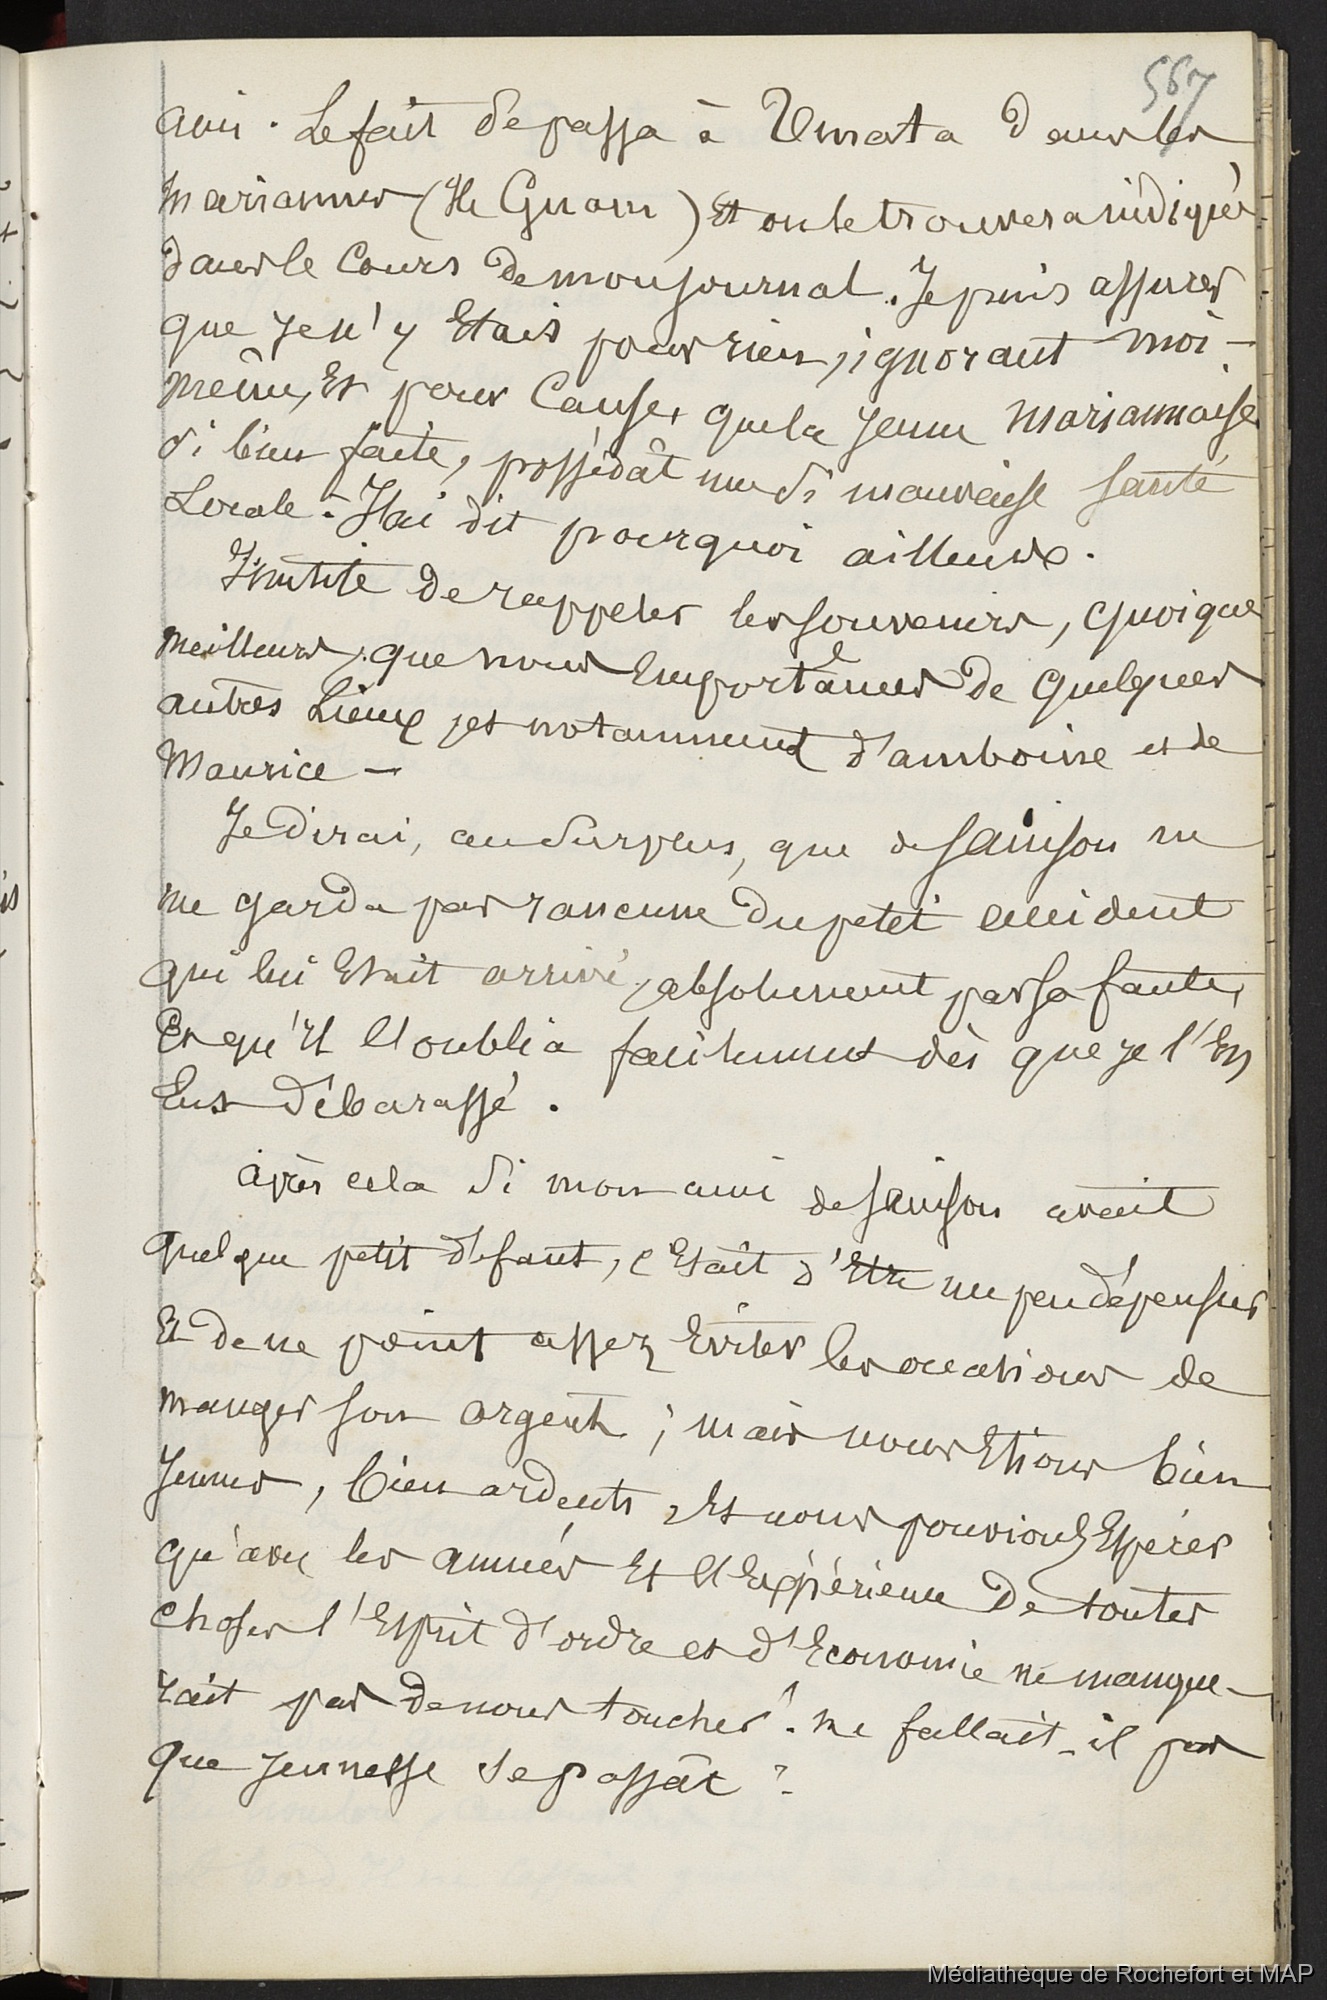 567
ami. Le fait se passa à Umata dans les
mariannes (Ile Guam) Et on le trouvera rédigés
dans le Cours de mon journal. Je puis assurer
que je n'y Etais pour rien, ignorant moi-
même, Et pour Cause, que la jeune mariannaise
si bien faite, possédât une si mauvaise santé
Locale. J'ai dit pourquoi ailleurs.
Inutile de rappeler les souvenirs, quoique
meilleurs, que nous Emportâmes de quelques
autres Lieux, et notamment d'amboine et de
Maurice —
Je dirai, au surplus, que de Sainson ne
me garda pas rancune du petit accident
qui lui Etait arrivé, absolument par sa faute,
Et qu'Il l'oublia facilement dès que je l'En
Eus débarassé.
après cela si mon ami de Sainson avait
quelque petit défaut, c'Etait d'Etre un peu dépensier
Et de ne point assez Eviter les occasions de
manger son argent ; mais nous Etions bien
jeunes, bien ardents, Et nous pouvions Espérer
qu'avec les années Et l'Expérience de toutes
choses l'Esprit d'ordre et d'Economie ne manque-
rait pas de nous toucher. ne fallait-il pas
que jeunesse se passât ?
Médiathèque de Rochefort et MAP